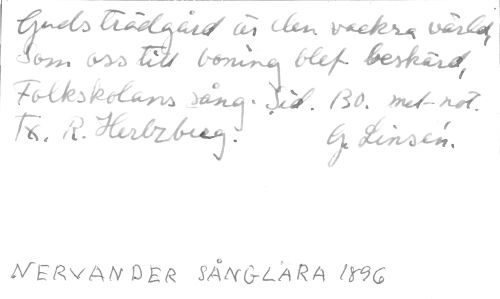 Guds trädgård är den vackra värld,
Som oss till boning blef beskärd,
Folkskolans sång. Sid. 130. met not.
Tx. R. Hertzberg. G. Linsén.
NERVANDER SÅNGLÄRA 1896